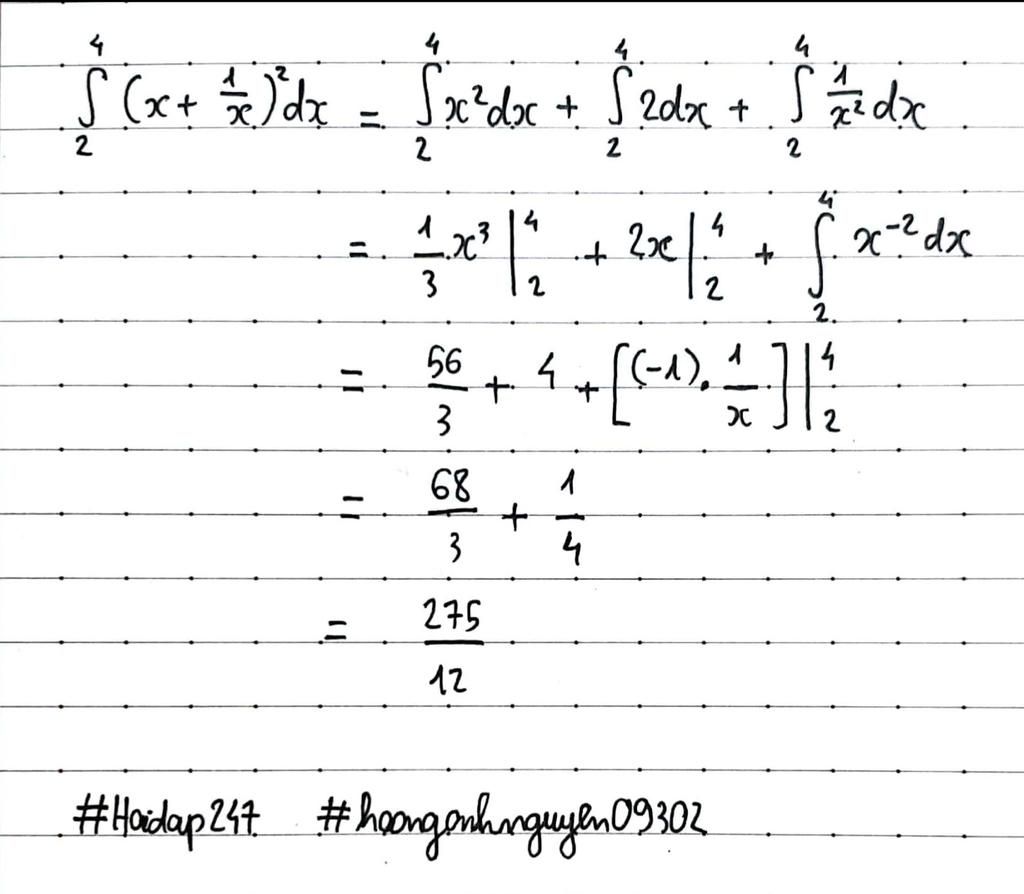 ∫₂⁴ (x + 1/x)² dx = ∫₂⁴ x² dx + ∫₂⁴ 2dx + ∫₂⁴ 1/x² dx
= 1/3 x³ |₂⁴ + 2x |₂⁴ + ∫₂⁴ x⁻² dx
= 56/3 + 4 + [(-1) . 1/x] |₂⁴
= 68/3 + 1/4
= 275/12
#Hoidap247 #hoanganhnguyen09302